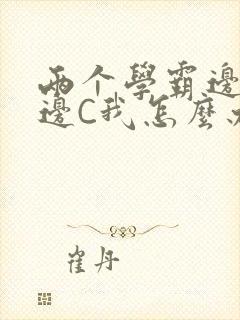 两个學霸邊
邊C我怎麼
崔丹